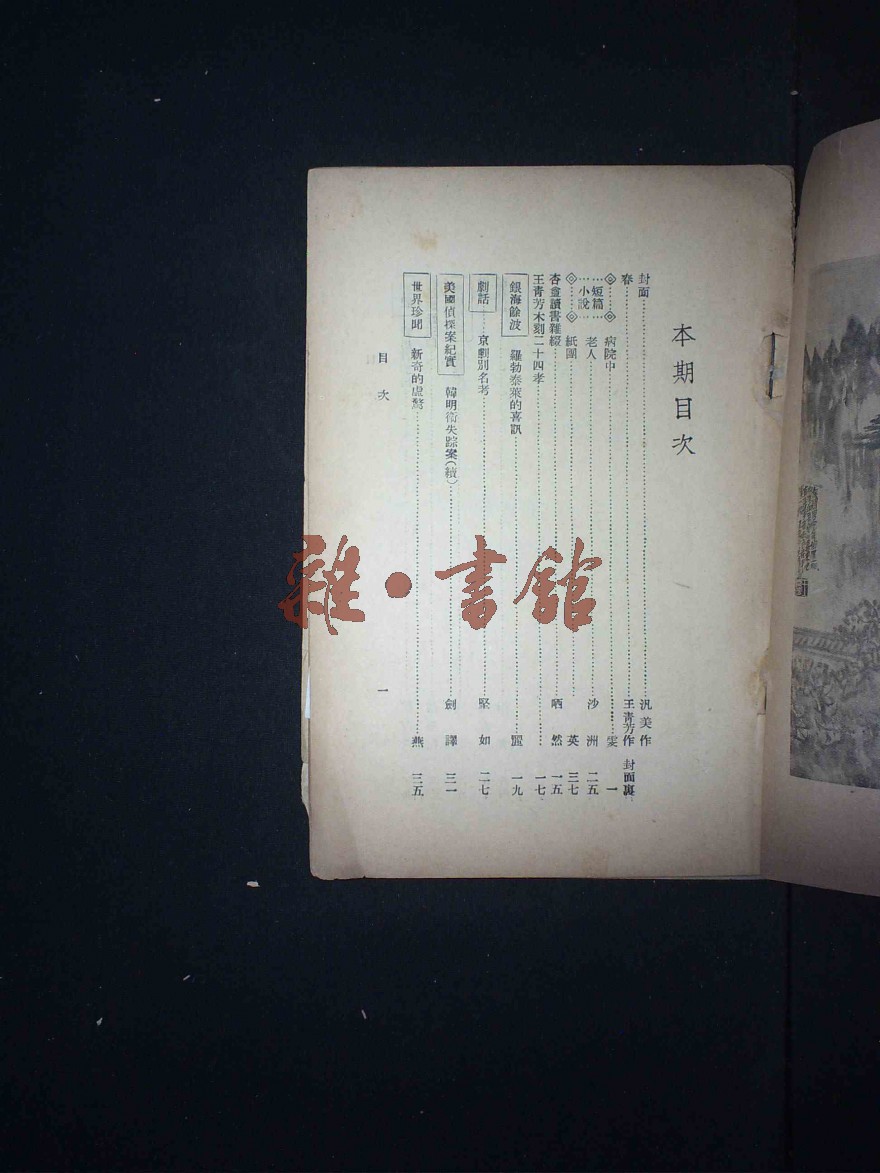 本期目次
封面 汎美作
春 王青芳作 封面裏
病院中 雯 一
短篇小說 老人 沙洲 二五
紙團 英 三七
杏盦讀書雜綴 哂然 一五
王青芳木刻二十四孝 一七
銀海餘波 羅勃泰萊的喜訊 一九
劇話 京劇別名考 堅如 二七
美國偵探案紀實 韓明衞失踪案(續) 劍譯 三一
世界珍聞 新奇的虛驚 燕 三五
目次 一
雜·書館